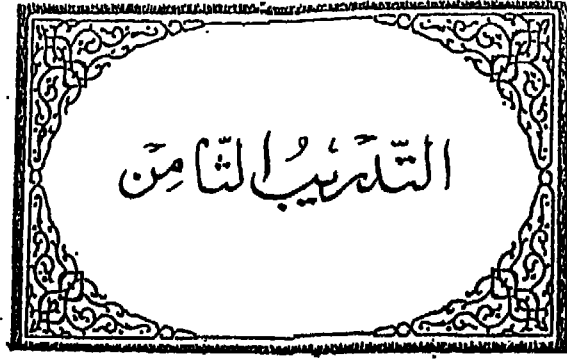 التَّدرَيبُ الثَّامِنَ